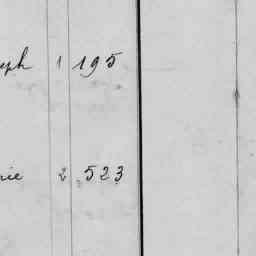 eph 1 195
rie 2 523